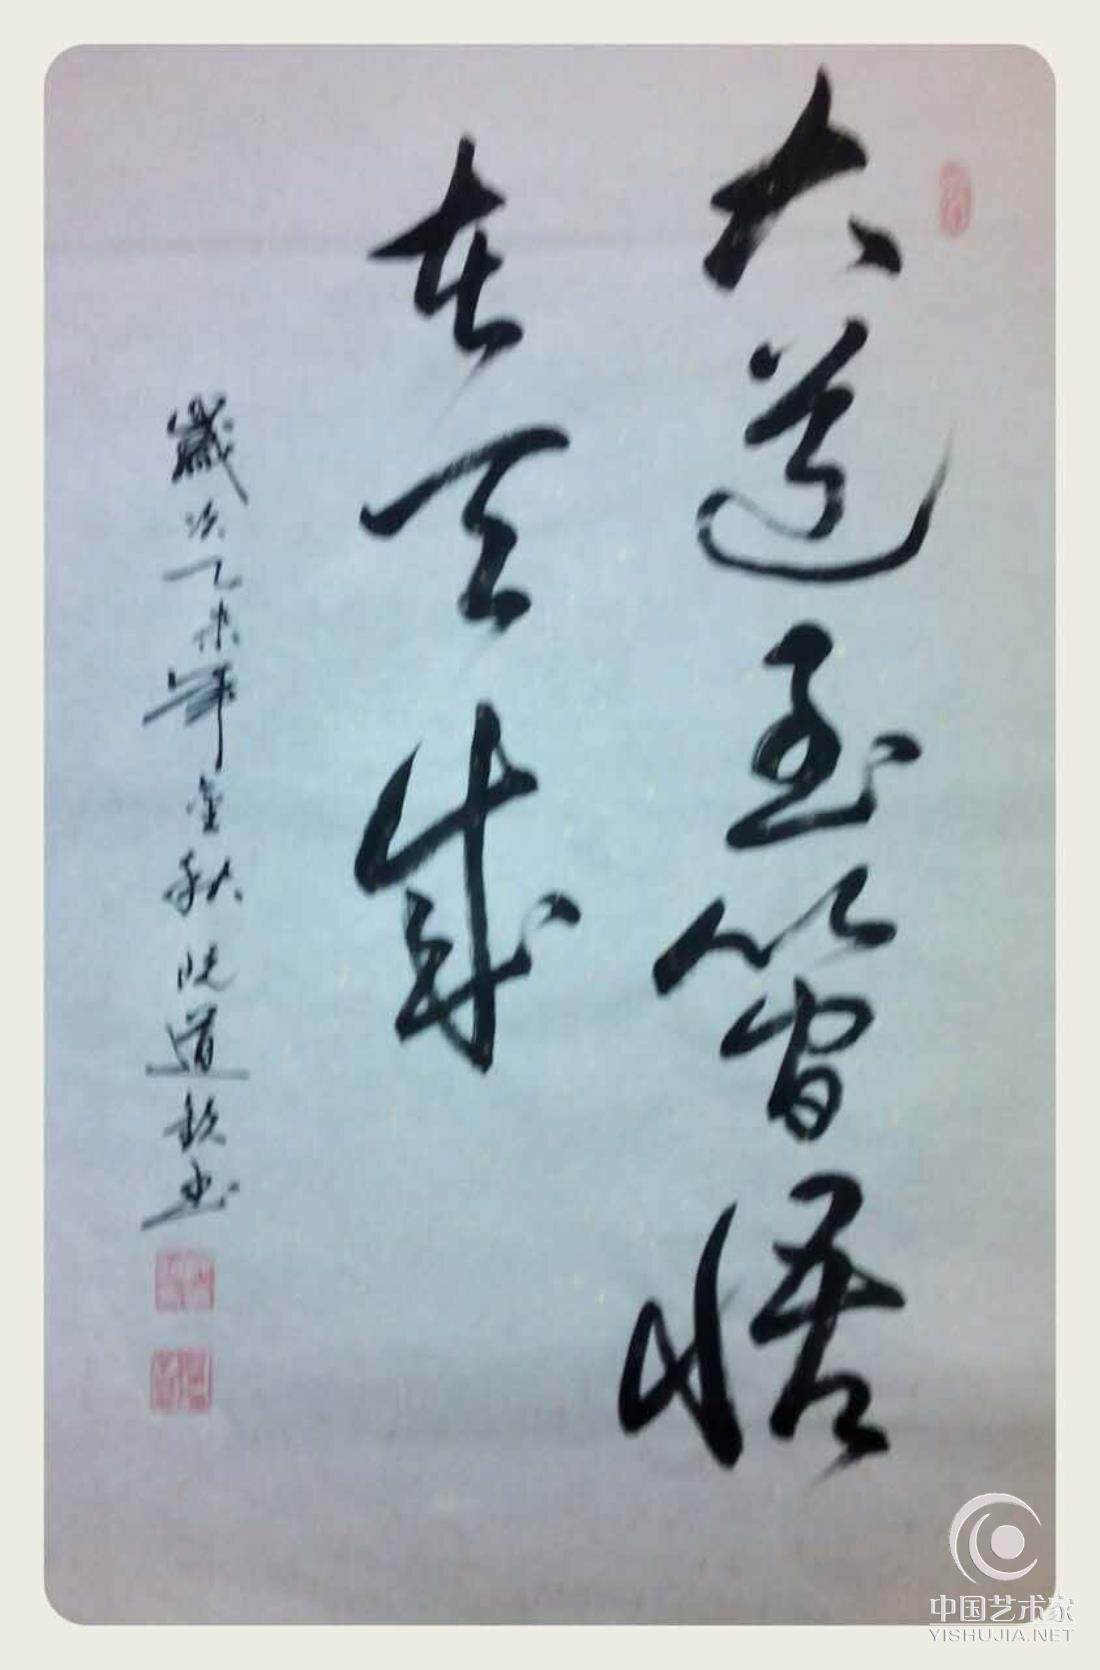 大道至简悟
在天成
歲次乙未年金秋阮道毅书
中国艺术家
YISHUJIA.NET